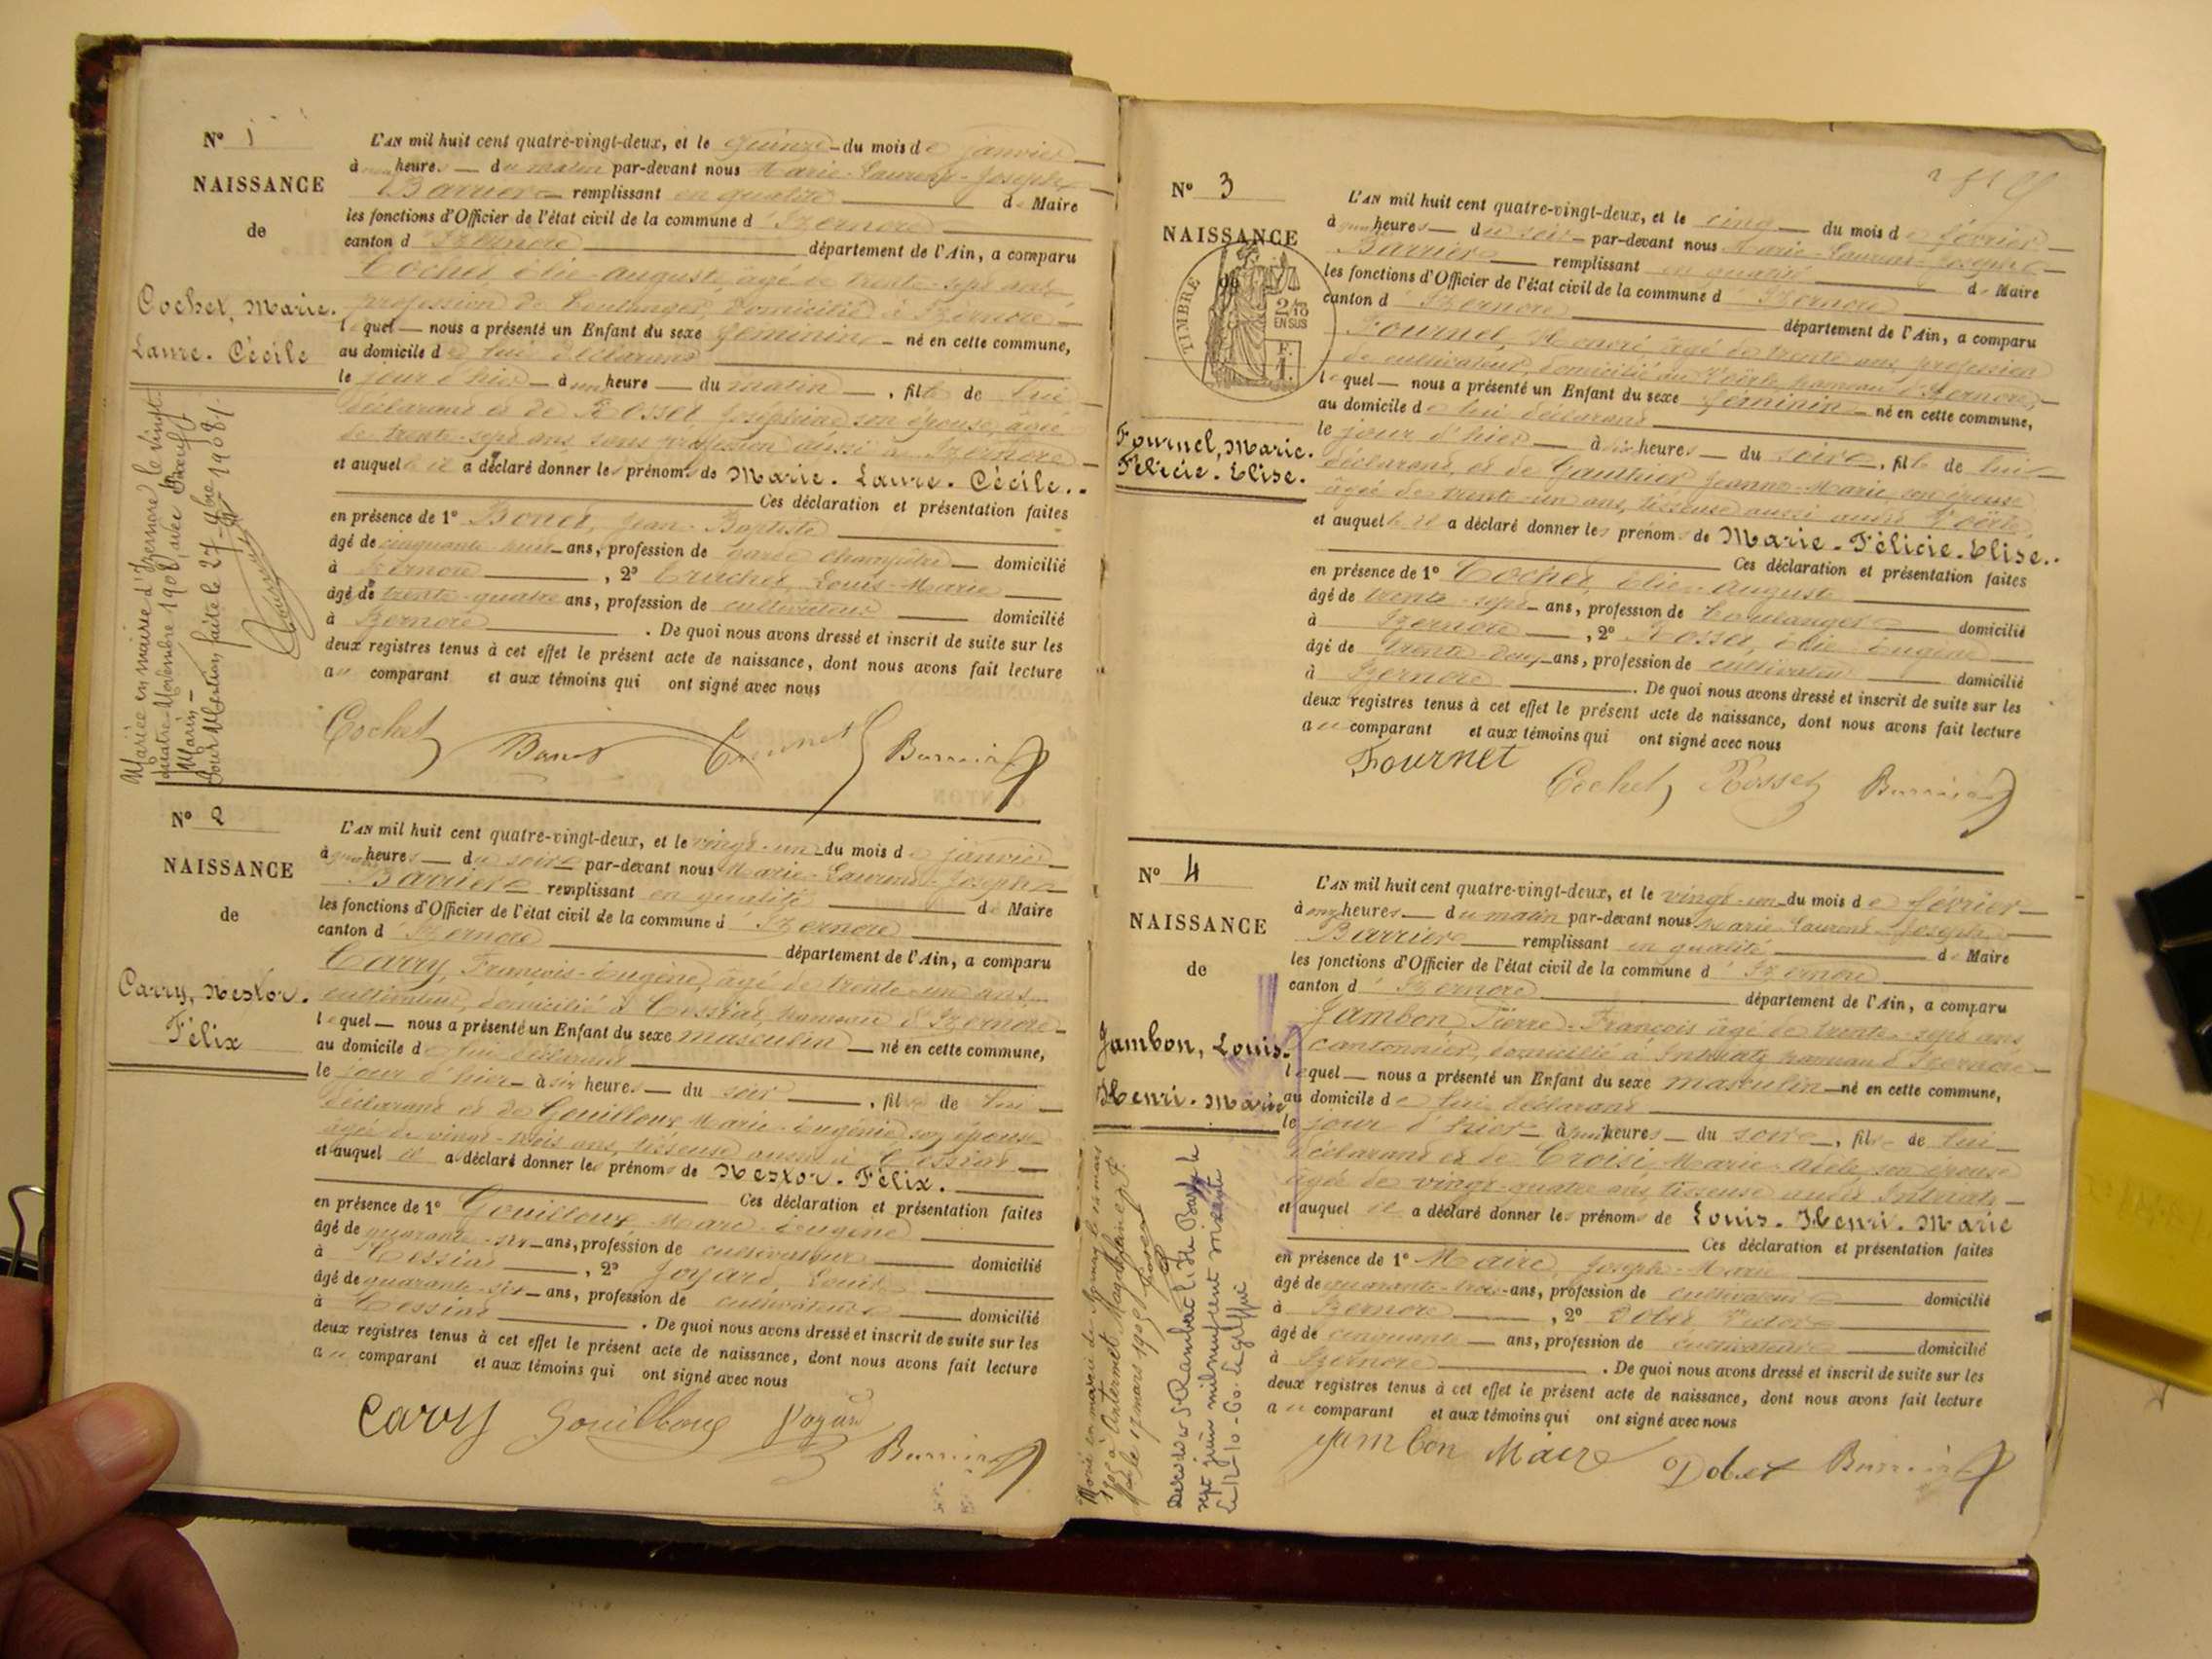 N° 1
NAISSANCE
de
Cochet, Marie.
Laure. Cécile
L'AN mil huit cent quatre-vingt-deux, et le quinze du mois de janvier
à heures du matin par-devant nous Marie-Laurent-Joseph
Barrier remplissant en qualité de Maire
les fonctions d'Officier de l'état civil de la commune d'Izernore
canton d'Izernore département de l'Ain, a comparu
Cochet, Élie-Auguste, âgé de trente-sept ans,
profession de boulanger, domicilié à Izernore
lequel nous a présenté un Enfant du sexe féminin né en cette commune,
au domicile de lui déclarant
le jour d'hier à une heure du matin, fille de lui
déclarant et de Rosset, Joséphine son épouse, âgée
de trente-sept ans, sans profession aussi à Izernore
et auquel il a déclaré donner les prénoms de Marie. Laure. Cécile..
Ces déclaration et présentation faites
en présence de 1° Bonet, Jean-Baptiste
âgé de cinquante-huit ans, profession de garde champêtre domicilié
à Izernore, 2° Cruchet, Louis-Marie
âgé de trente-quatre ans, profession de cultivateur domicilié
à Izernore. De quoi nous avons dressé et inscrit de suite sur les
deux registres tenus à cet effet le présent acte de naissance, dont nous avons fait lecture
au comparant et aux témoins qui ont signé avec nous
Cochet Bonet Barrier
Mariée en mairie d'Izernore le vingt
quatre Novembre 1908, avec
Marin
Pour Mention, faite le 27 9bre 1908
N° 2
NAISSANCE
de
Carry, Nestor.
Félix
L'AN mil huit cent quatre-vingt-deux, et le vingt-un du mois de janvier
à quatre heures du soir par-devant nous Marie-Laurent-Joseph
Barrier remplissant en qualité de Maire
les fonctions d'Officier de l'état civil de la commune d'Izernore
canton d'Izernore département de l'Ain, a comparu
Carry, François-Eugène, âgé de trente-un ans
cultivateur, domicilié à Cessiat, hameau d'Izernore
lequel nous a présenté un Enfant du sexe masculin né en cette commune,
au domicile de lui déclarant
le jour d'hier à six heures du soir, fils de lui
déclarant et de Gouilloux Marie-Eugénie son épouse
âgée de vingt-trois ans, tisseuse aussi à Cessiat
et auquel il a déclaré donner les prénoms de Nestor. Félix.
Ces déclaration et présentation faites
en présence de 1° Gouilloux Marc-Eugène
âgé de quarante-six ans, profession de cultivateur domicilié
à Cessiat, 2° Joyard, Louis
âgé de quarante-six ans, profession de cultivateur domicilié
à Cessiat. De quoi nous avons dressé et inscrit de suite sur les
deux registres tenus à cet effet le présent acte de naissance, dont nous avons fait lecture
au comparant et aux témoins qui ont signé avec nous
Carry Gouilloux Joyard Barrier
N° 3
NAISSANCE
de
TIMBRE
2/10
EN SUS
F.
1.
Fournel, Marie.
Félicie. Élise.
L'AN mil huit cent quatre-vingt-deux, et le cinq du mois de février
à heures du soir par-devant nous Marie-Laurent-Joseph
Barrier remplissant en qualité de Maire
les fonctions d'Officier de l'état civil de la commune d'Izernore
canton d'Izernore département de l'Ain, a comparu
Fournel, Honoré, âgé de trente ans, profession
de cultivateur, domicilié au hameau d'Izernore,
lequel nous a présenté un Enfant du sexe féminin né en cette commune,
au domicile de lui déclarant
le jour d'hier à six heures du soir, fille de lui
déclarant, et de Gauthier Jeanne-Marie, son épouse
âgée de trente-un ans, tisseuse aussi
et auquel il a déclaré donner les prénoms de Marie. Félicie. Élise..
Ces déclaration et présentation faites
en présence de 1° Cochet, Élie-Auguste
âgé de trente-sept ans, profession de boulanger domicilié
à Izernore, 2° Rosset, Élie-Eugène
âgé de trente-deux ans, profession de cultivateur domicilié
à Izernore. De quoi nous avons dressé et inscrit de suite sur les
deux registres tenus à cet effet le présent acte de naissance, dont nous avons fait lecture
au comparant et aux témoins qui ont signé avec nous
Fournel
Cochet Rosset Barrier
N° 4
NAISSANCE
de
Jambon, Louis.
Henri. Marie
L'AN mil huit cent quatre-vingt-deux, et le vingt-un du mois de février
à onze heures du matin par-devant nous Marie-Laurent-Joseph
Barrier remplissant en qualité de Maire
les fonctions d'Officier de l'état civil de la commune d'Izernore
canton d'Izernore département de l'Ain, a comparu
Jambon, Pierre-François âgé de trente-sept ans
cantonnier, domicilié à Intriat, hameau d'Izernore
lequel nous a présenté un Enfant du sexe masculin né en cette commune,
au domicile de lui déclarant
le jour d'hier à heures du soir, fils de lui
déclarant et de Croisi, Marie-Adèle, son épouse
âgée de vingt-quatre ans, tisseuse audit Intriat
et auquel il a déclaré donner les prénoms de Louis. Henri. Marie
Ces déclaration et présentation faites
en présence de 1° Maire, Joseph-Marie
âgé de quarante-trois ans, profession de cultivateur domicilié
à Izernore, 2° Dobet
âgé de cinquante ans, profession de cultivateur domicilié
à Izernore. De quoi nous avons dressé et inscrit de suite sur les
deux registres tenus à cet effet le présent acte de naissance, dont nous avons fait lecture
au comparant et aux témoins qui ont signé avec nous
Jambon Maire Dobet Barrier
Marié en mairie de
1905 à Antermet Magdeleine
le 17 mars 1905
Décédé à St Rambert l'Ile Barbe le
sept juin mil neuf cent soixante
Le 12-10-60. Le greffier